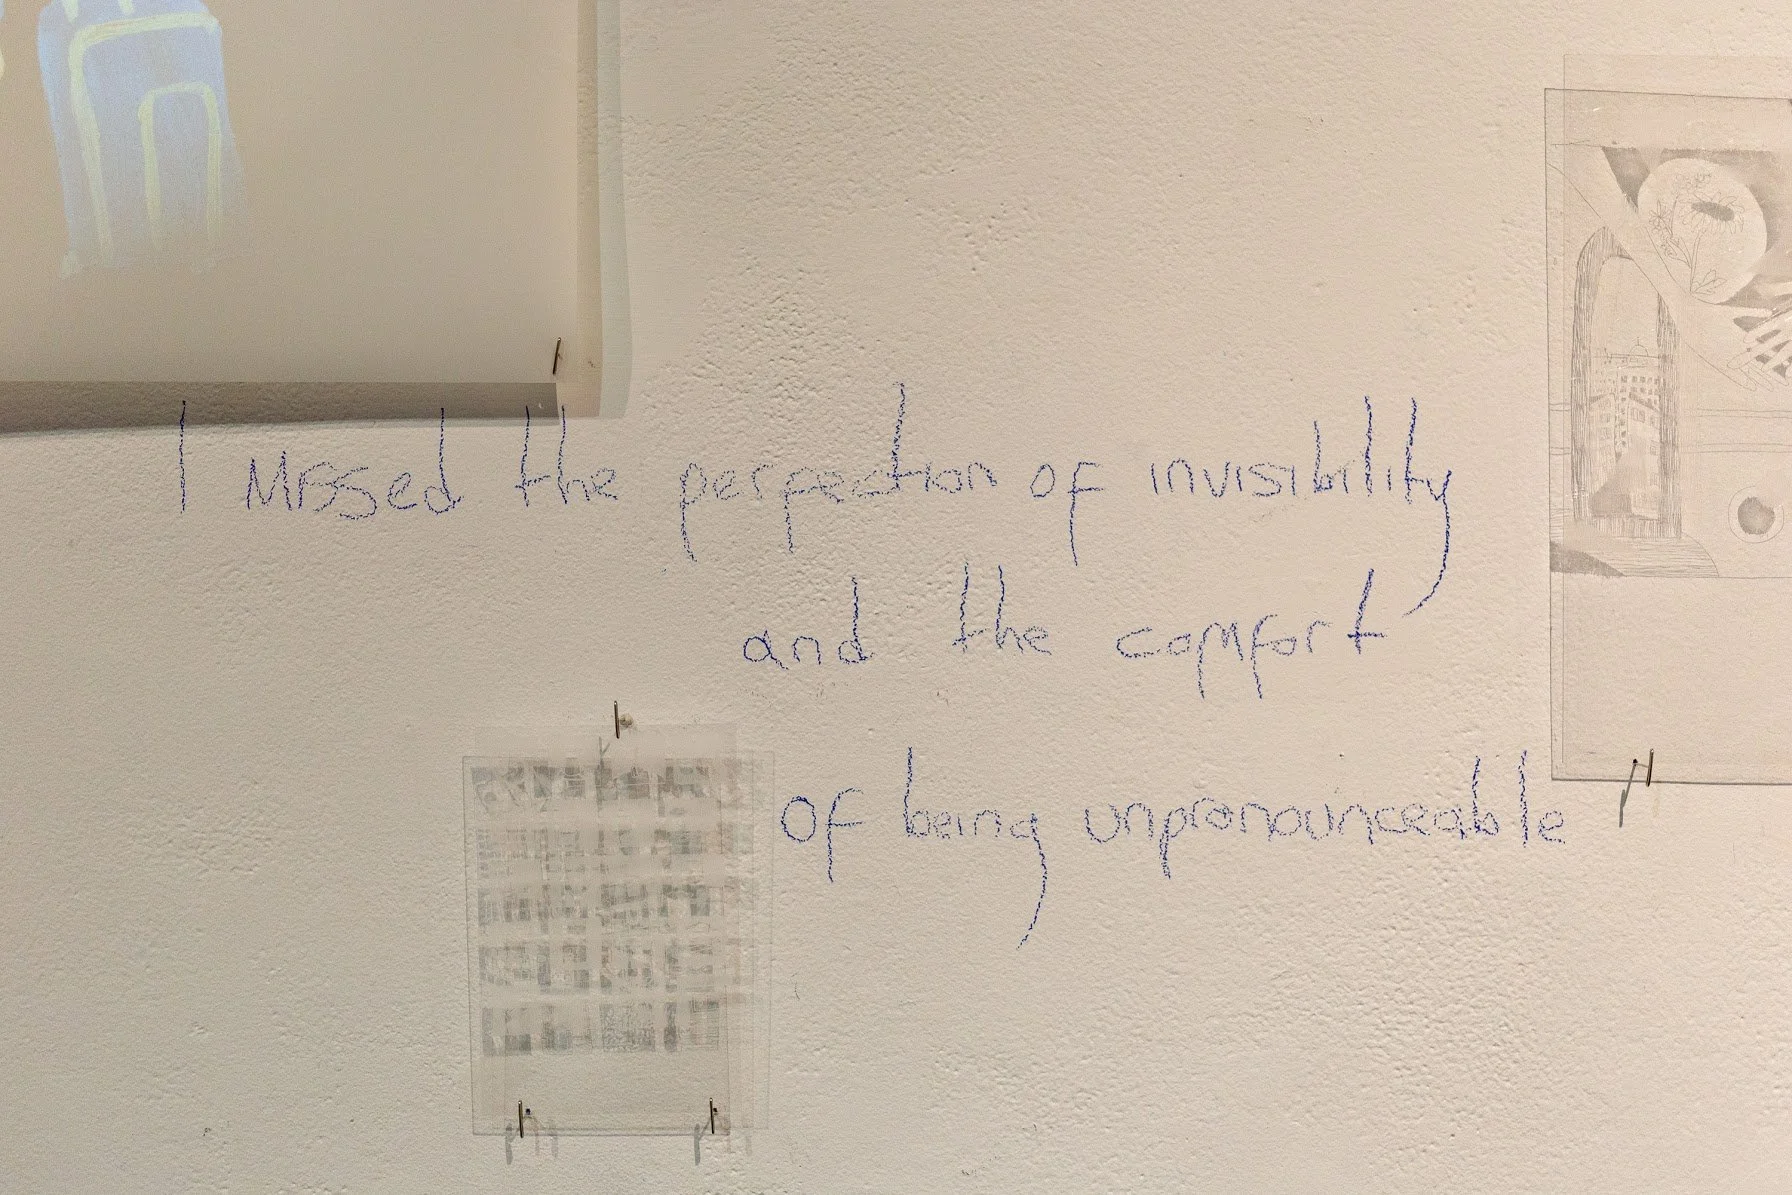 I missed the perfection of invisibility
and the comfort
of being unpronounceable